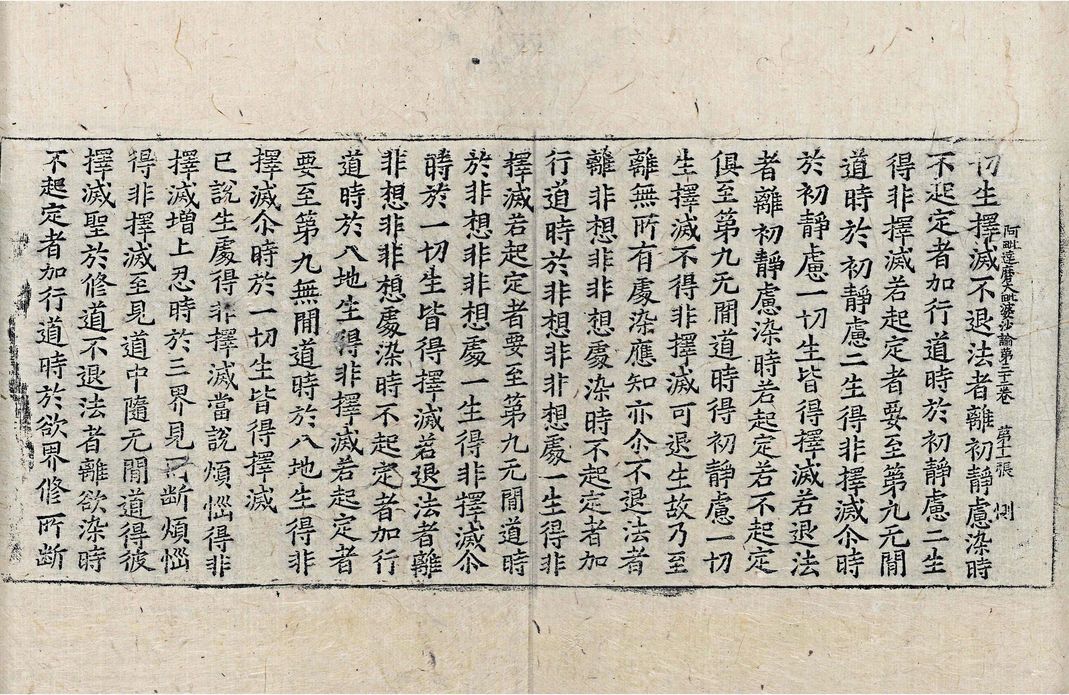 阿毗達磨大毗婆沙論第三十二卷 第十一張 惻
切生擇滅不退法者離初靜慮染時
不起定者加行道時於初靜慮二生
得非擇滅若起定者要至第九无閒
道時於初靜慮二生得非擇滅尒時
於初靜慮一切生皆得擇滅若退法
者離初靜慮染時若起定若不起定
俱至第九无閒道時得初靜慮一切
生擇滅不得非擇滅可退生故乃至
離無所有處染應知亦尒不退法者
離非想非非想處染時不起定者加
行道時於非想非非想處一生得非
擇滅若起定者要至第九无閒道時
於非想非非想處一生得非擇滅尒
時於一切生皆得擇滅若退法者離
非想非非想處染時不起定者加行
道時於八地生得非擇滅若起定者
要至第九無閒道時於八地生得非
擇滅尒時於一切生皆得擇滅
已說生處得非擇滅當說煩惱得非
擇滅增上忍時於三界見所斷煩惱
得非擇滅至見道中隨无閒道得彼
擇滅聖於修道不退法者離欲染時
不起定者加行道時於欲界修所斷